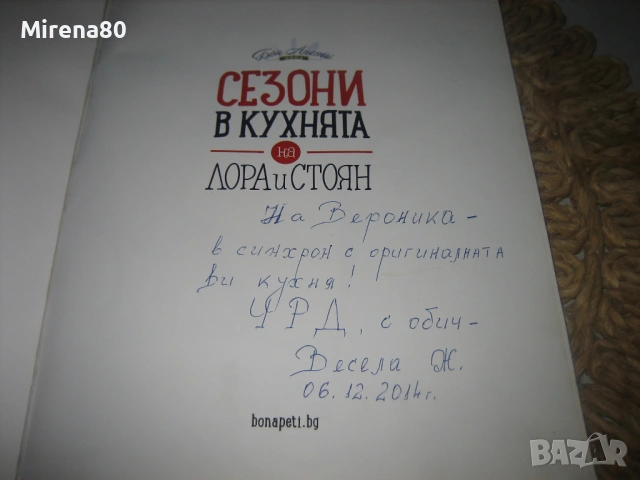 Mirena80
Бон Апети
СЕЗОНИ
В КУХНЯТА
на
ЛОРА и СТОЯН
На Вероника –
в синхрон с оригиналната
ви кухня!
ЧРД, с обич –
Весела Ж.
06.12.2014г.
bonapeti.bg
BAZAR